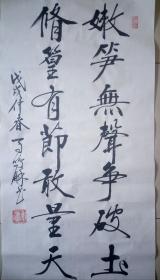 嫩笋無聲争破土
脩篁有節敢量天
戊戌仲春